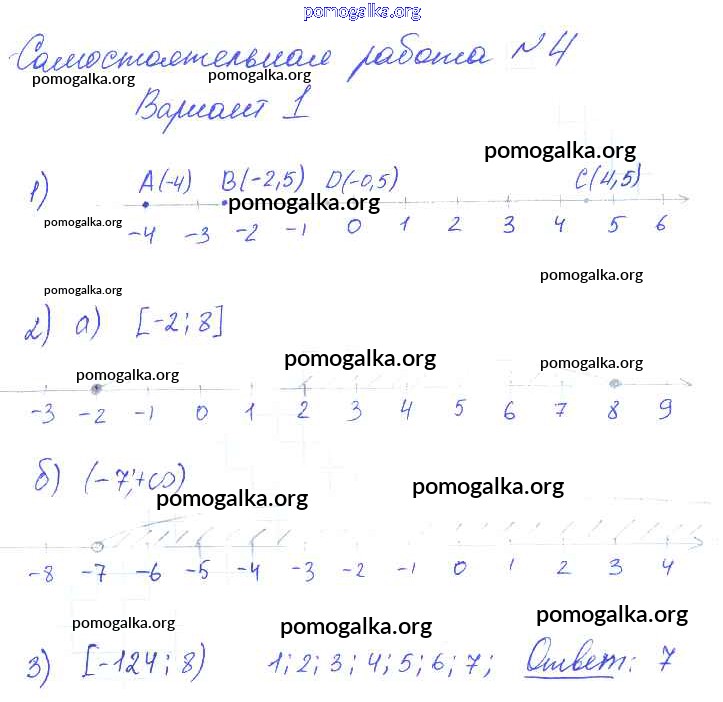 pomogalka.org
Самостоятельная работа №4
pomogalka.org pomogalka.org
Вариант 1
pomogalka.org
1) A(-4) B(-2,5) D(-0,5) C(4,5)
pomogalka.org
pomogalka.org
-4 -3 -2 -1 0 1 2 3 4 5 6
pomogalka.org
pomogalka.org
2) а) [-2; 8]
pomogalka.org pomogalka.org pomogalka.org
-3 -2 -1 0 1 2 3 4 5 6 7 8 9
б) (-7;+∞)
pomogalka.org pomogalka.org
-8 -7 -6 -5 -4 -3 -2 -1 0 1 2 3 4
pomogalka.org pomogalka.org pomogalka.org
3) [-124; 8) 1; 2; 3; 4; 5; 6; 7; Ответ: 7